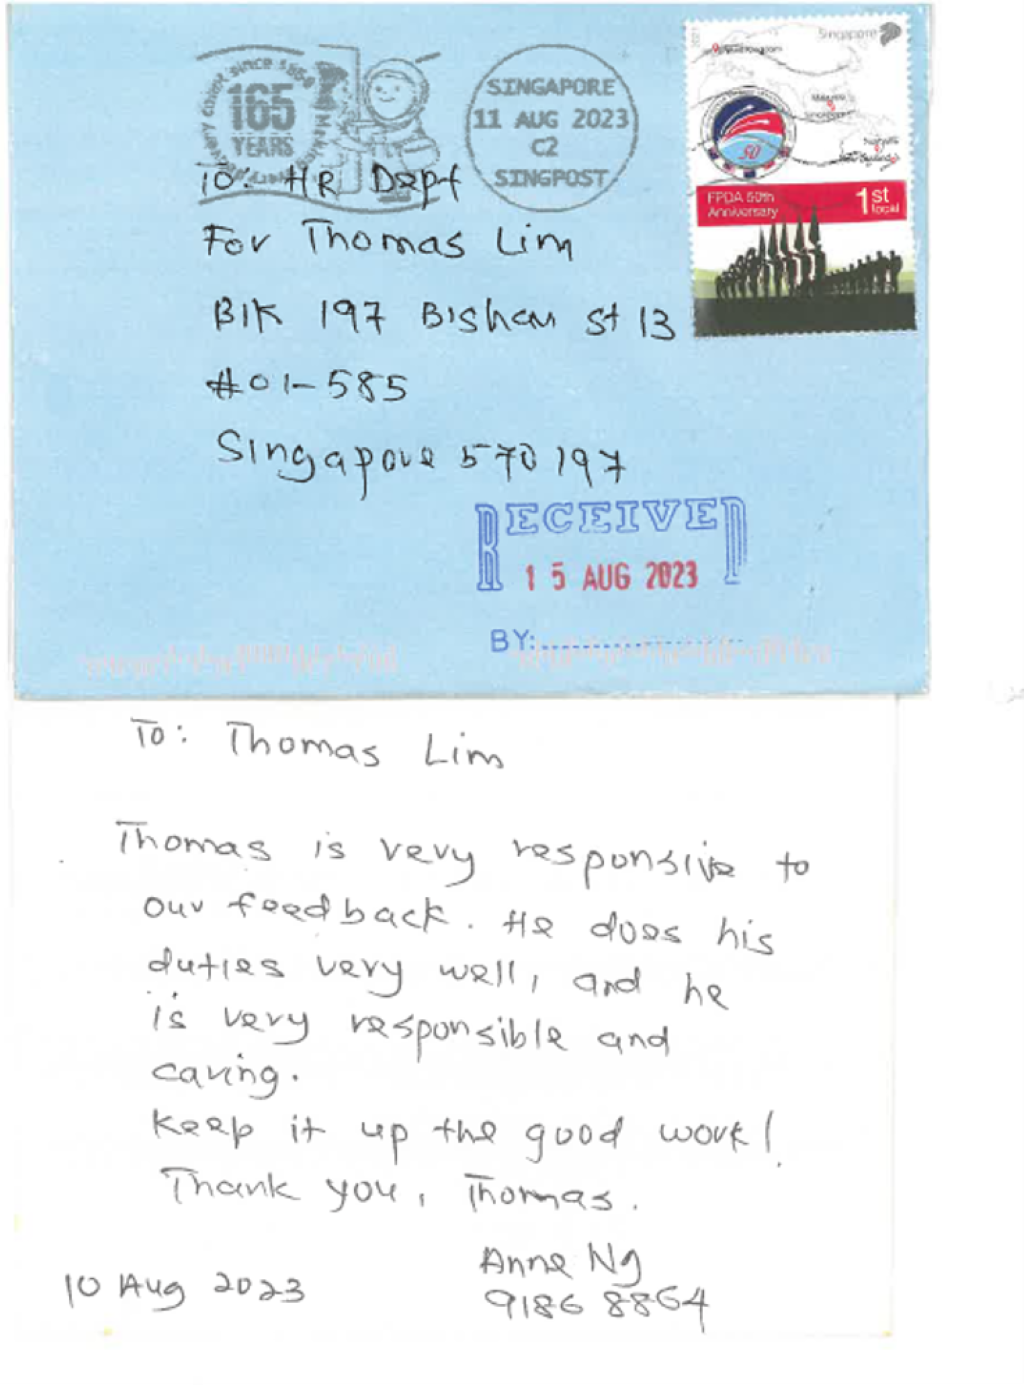 since 1858
165
YEARS
SINGAPORE
11 AUG 2023
C2
SINGPOST
2021
Singapore
United Kingdom
Malaysia
Singapore
Australia
New Zealand
50
FPDA 50th
Anniversary
1st
local
To: HR Dept
For Thomas Lim
Blk 197 Bishan st 13
#01-585
Singapore 570197
RECEIVED
15 AUG 2023
BY:
To: Thomas Lim
Thomas is very responsive to
our feedback. He does his
duties very well, and he
is very responsible and
caring.
Keep it up the good work!
Thank you, Thomas.
Anne Ng
10 Aug 2023
9186 8864